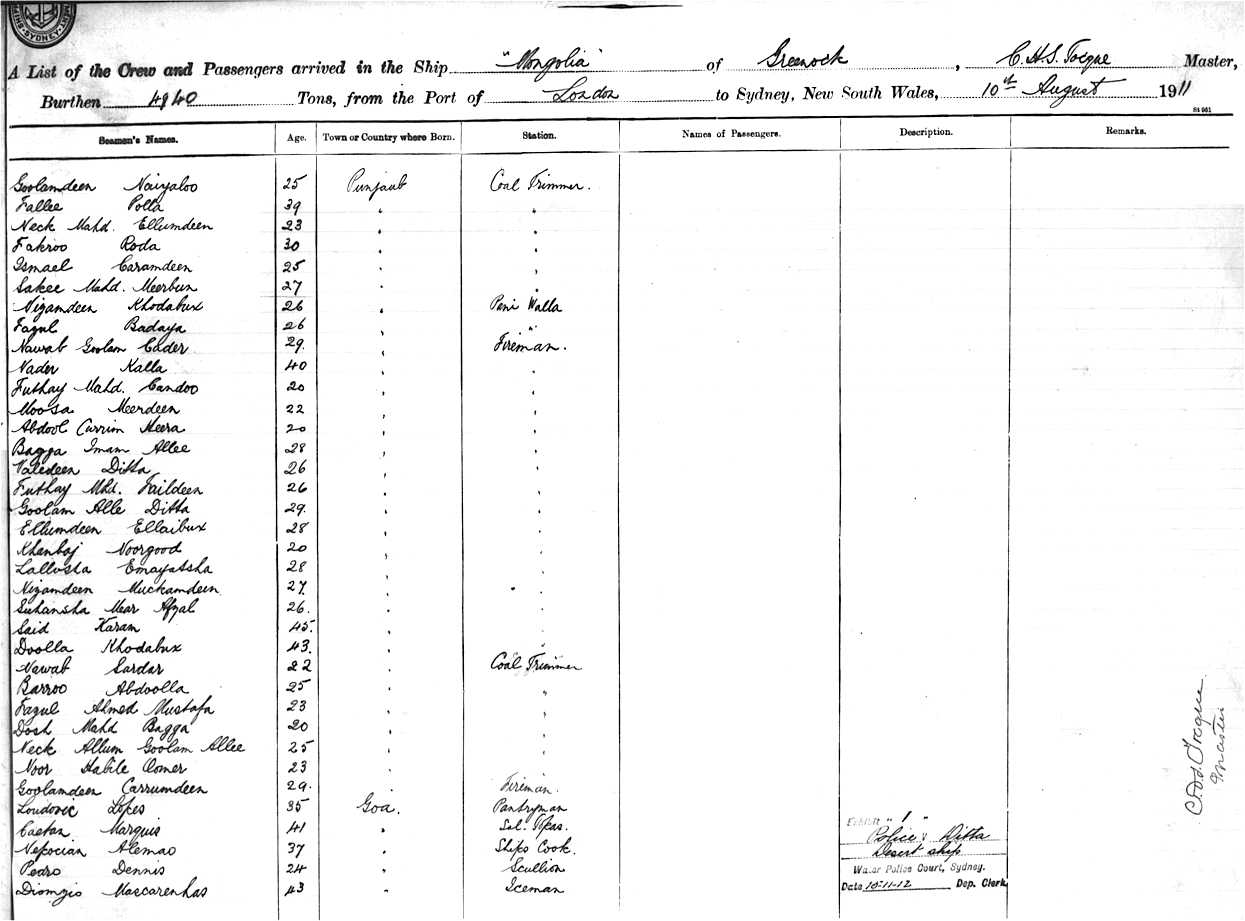 SYDNEY
A List of the Crew and Passengers arrived in the Ship "Mongolia" of Greenock, C.H.S. Tocque Master,
Burthen 4940 Tons, from the Port of London to Sydney, New South Wales, 10th August 1911
St 961
Seamen's Names. Age. Town or Country where Born. Station. Names of Passengers. Description. Remarks.
Goolamdeen Naiyaloo 25 Punjaub Coal Trimmer.
Fallee Polla 39 " "
Neck Mahd. Ellumdeen 23 " "
Fakroo Roda 30 " "
Ismael Caramdeen 25 " "
Sakee Mahd. Meerbun 27 " "
Nizamdeen Khodabux 26 " Peni Walla
Fazul Badaya 26 " "
Nawab Goolam Cader 29. " Fireman.
Nader Kalla 40 " "
Futhay Mahd. Candoo 20 " "
Moosa Meerdeen 22 " "
Abdool Currim Heera 20 " "
Bagga Imam Allee 28 " "
Valedeen Ditta 26 " "
Futhay Mhd. Faildeen 26 " "
Goolam Alle Ditta 29. " "
Ellumdeen Ellaibux 28 " "
Khanbaj Noorgood 20 " "
Lallusha Emayatsha 28 " "
Nizamdeen Muckamdeen 27. " "
Suhansha Mear Afzal 26. " "
Said Karam 45. " "
Doolla Khodabux 43. " "
Nawab Sardar 22 " Coal Trimmer
Barroo Abdoolla 25 " "
Fazul Ahmed Mustafa 23 " "
Dosh Mahd Bagga 20 " "
Neck Allum Goolam Allee 25 " "
Noor Habile Oomer 23 " "
Goolamdeen Carrumdeen 29. " Fireman.
Loudovic Lopes 35 Goa. Pantryman
Caetan Marquis 41 " Sal. Topas.
Nepocian Alemao 37 " Ships Cook.
Pedro Dennis 24 " Scullion
Dionzio Mascarenhas 43 " Iceman
Exhibit "1"
Police v Ditta
Desert ship
Water Police Court, Sydney.
Date 10-11-12 Dep. Clerk
Master